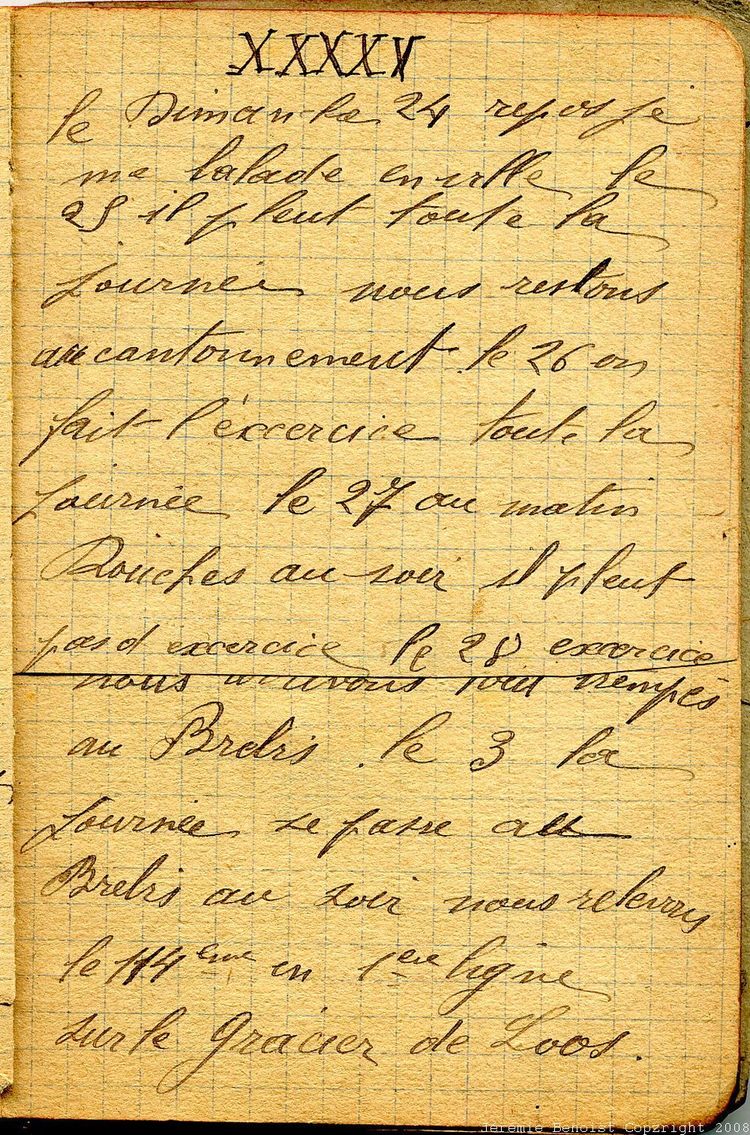 XXXXV
le Dimanche 24 repos je
me balade en ville le
25 il pleut toute la
journée nous restons
au cantonnement le 26 on
fait l'éxercice toute la
journée le 27 au matin
Douches au soir il pleut
pas d exercice le 28 exercice
nous arrivons tout trempés
au Brebis. le 3 la
journée se passe au
Brebis au soir nous relevons
le 114eme en 1ere ligne
sur le Gracier de Loos.
Jeremie Benoist Copyright 2008